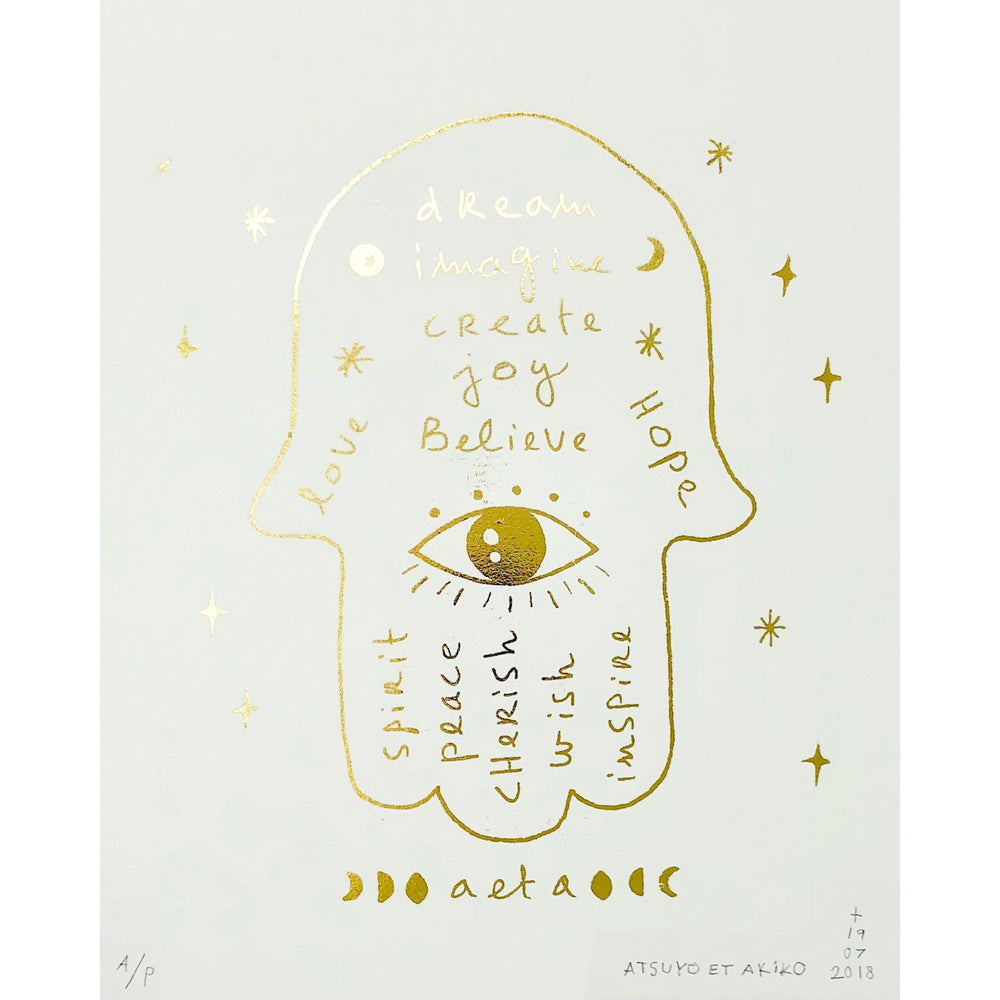 dREam
imagine
CREate
joy
BelieVe
love
HOPe
spiRit
peace
CHeRish
wish
inspiRe
aeta
A/P
ATSUYO ET AKiKO
+
19
07
2018